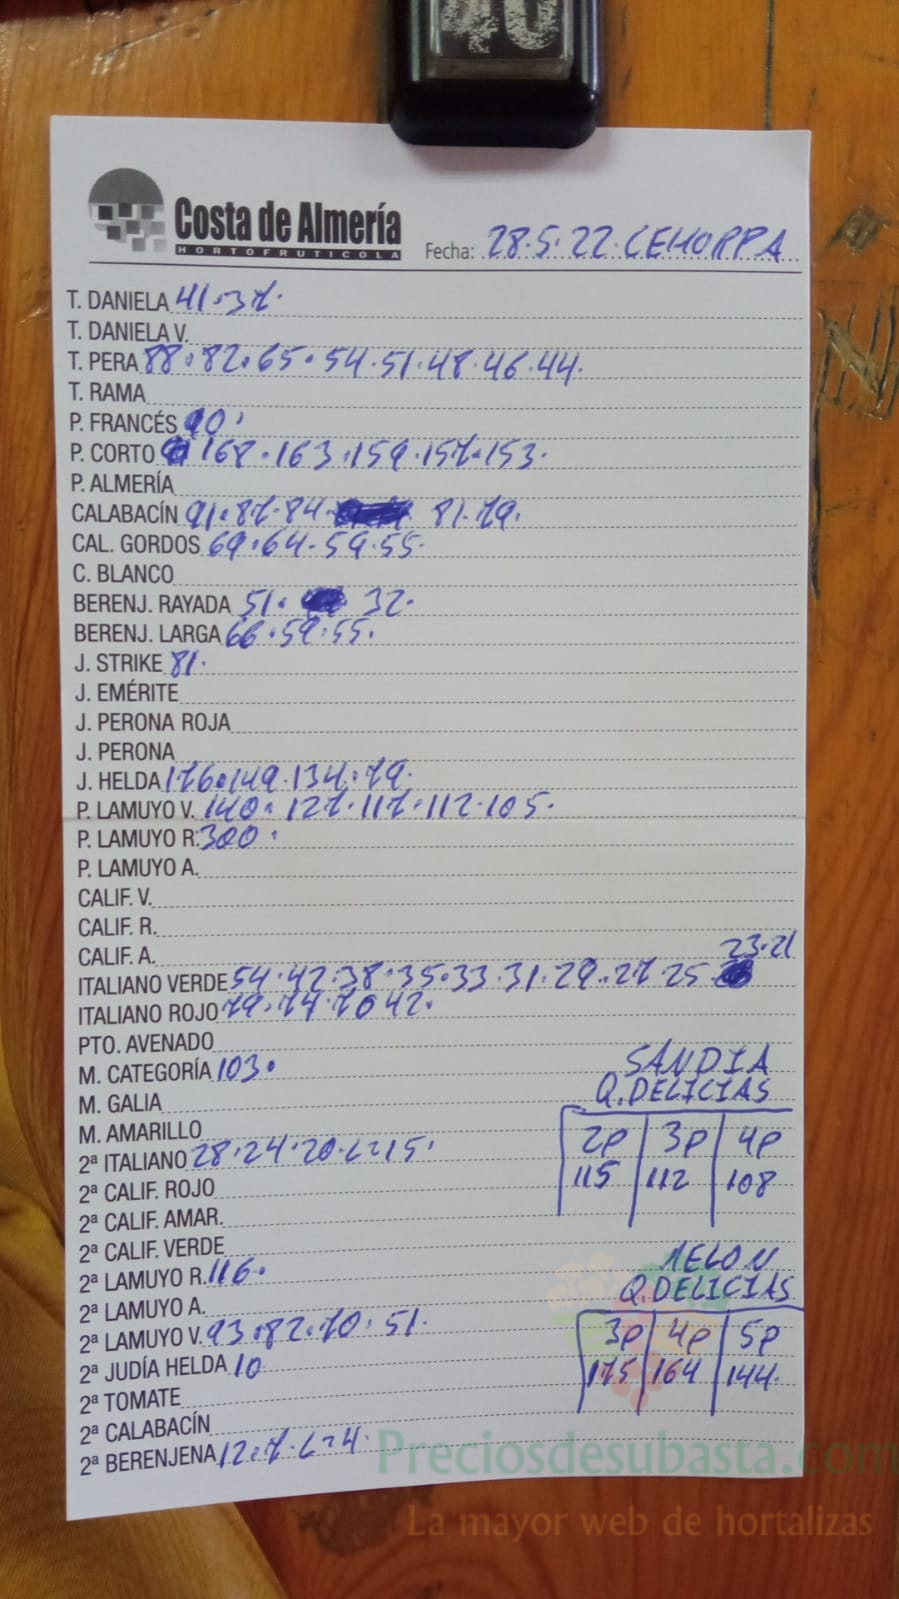 Costa de Almería
HORTOFRUTICOLA
Fecha: 28.5.22.CEHORPA
T. DANIELA 41.37.
T. DANIELA V.
T. PERA 88.82.65.54.51.48.46.44.
T. RAMA
P. FRANCÉS 90.
P. CORTO 168.163.159.157.153.
P. ALMERÍA
CALABACÍN 91.87.84. 81.79.
CAL. GORDOS 69.64.59.55.
C. BLANCO
BERENJ. RAYADA 51. 32.
BERENJ. LARGA 66.59.55.
J. STRIKE 81.
J. EMÉRITE
J. PERONA ROJA
J. PERONA
J. HELDA 176.149.134.79.
P. LAMUYO V. 140.127.117.112.105.
P. LAMUYO R. 300.
P. LAMUYO A.
CALIF. V.
CALIF. R.
CALIF. A.
23.21
ITALIANO VERDE 54.42.38.35.33.31.29.27.25
ITALIANO ROJO 79.74.70 42.
PTO. AVENADO
M. CATEGORÍA 103.
M. GALIA
M. AMARILLO
2ª ITALIANO 28.24.20. 15.
2ª CALIF. ROJO
2ª CALIF. AMAR.
2ª CALIF. VERDE
2ª LAMUYO R. 116.
2ª LAMUYO A.
2ª LAMUYO V. 93.82.70.51.
2ª JUDÍA HELDA 10
2ª TOMATE
2ª CALABACÍN
2ª BERENJENA 12.7. 4.
SANDIA
Q.DELICIAS
2P 3P 4P
115 112 108
MELON
Q.DELICIAS
3P 4P 5P
175 164 144.
Preciosdesubasta.com
La mayor web de hortalizas